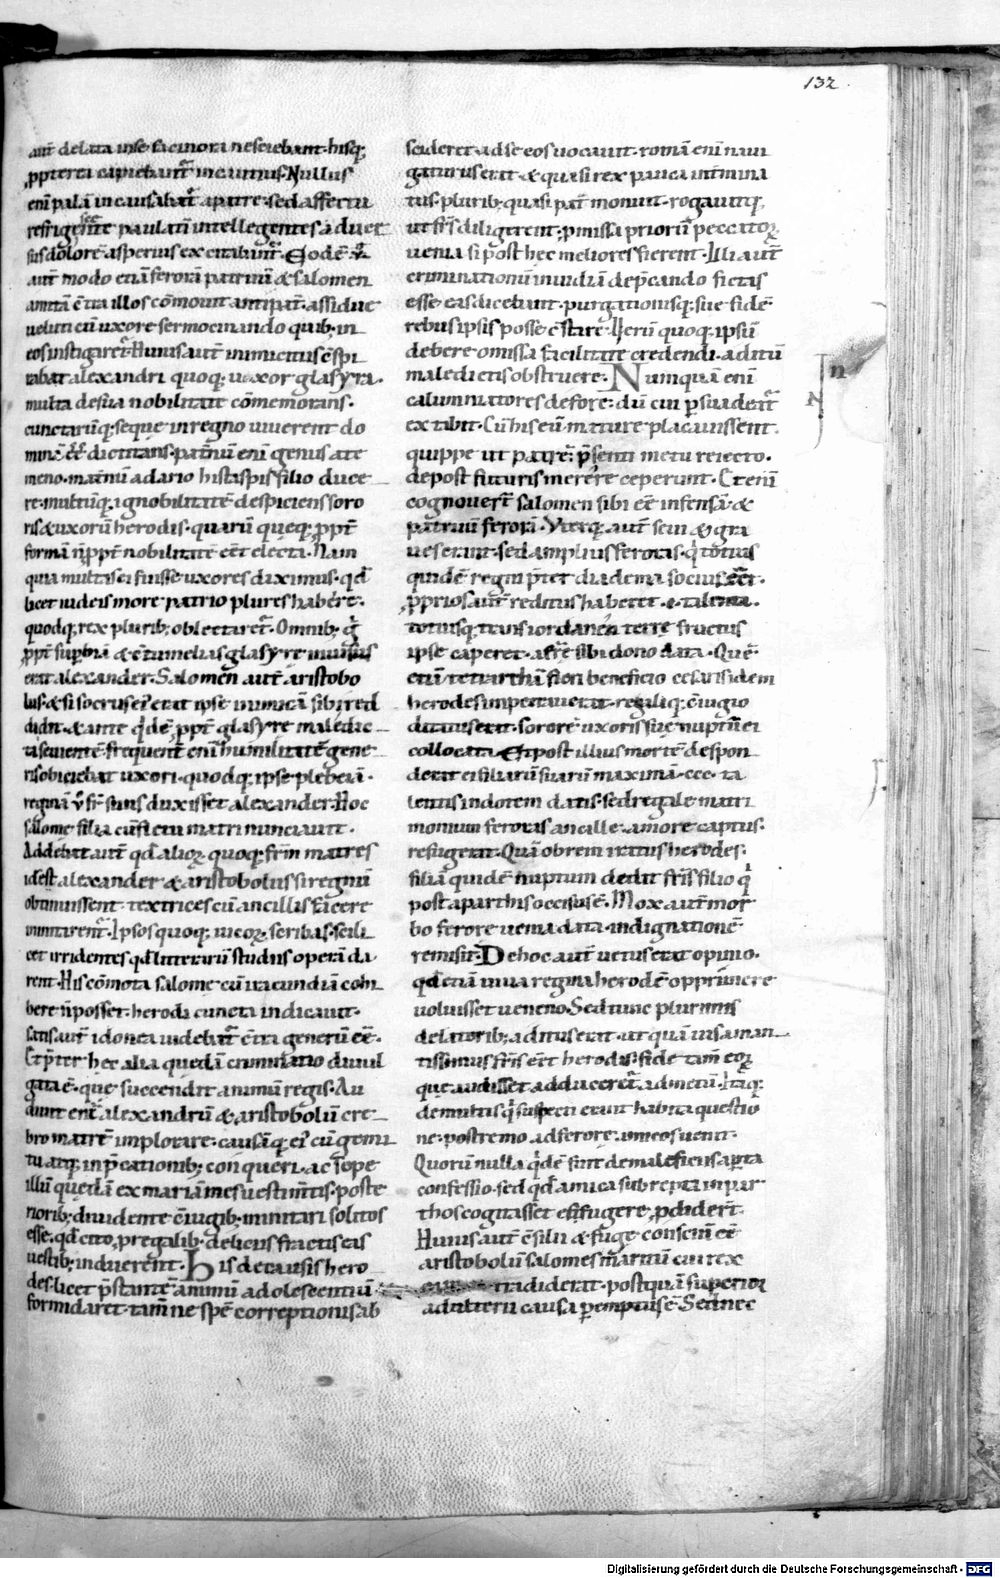 132
aut̄ delata in se facinora nesciebant· hisq;
ꝓpterea capiebant᷑ incautius· Nullus
eni palā incausabat᷑ apatre· sed affectu
refrigescente paulati intellegentes aduer
sus dolorē asperius excitabant᷑· Eodē ꝟ
aut̄ modo etiā ferorā patruū & salomen
amitā ꝯtra illos cōmouit antipat̄· assidue
ueluti cū uxore sermocinando quib; in
eos instigaret᷑· Huius aut̄ inimicitias ꝯspi
rabat alexandri quoq; uxor glafyra·
multa de sua nobilitate cōmemorans·
cunctarūq; seque in regno uiuerent do
minā eē dictitans· patnū enī genus ate
meno· mat̄nū adario histaspis filio duce
re· multūq; ignobilitatē despiciens soro
ris & uxorū herodis· quarū queq; ꝓpt̄
formā n̄ ꝓpt̄ nobilitatē eēt electa· Nam
quia multas ei fuisse uxores diximus· qđ
licet iudeis more patrio plures habere·
quodq; rex plurib; oblectaret᷑· Omnib; q̄
ꝓpt̄ supbiā & ꝯtumelias glafyre inuisus
erat alexander· Salomen aut̄ aristobo
lus· & si socrus ei erat ipse inimicā sibi red
didit· & ante q̇dē ꝓpt̄ glafyre maledic
ta seuientē· frequent̄ enī humilitatē gene
ris obiciebat uxori· quodq; ipse plebeiā·
reginā ꝟ fr̄ suus duxisset alexander· Hoc
salome filia cū fletu matri nunciauit·
Addebat aut̄ qđ alioꝝ quoq; fr̄m matres
idest alexander & aristobolus si regnū
obtinuissent· textrices cū ancillis facere
minitarent᷑· Ipsos quoq; uicoꝝ scribas· scili
cet irridentes qđ litterarū studiis operā da
rent· His cōmota salome cū iracundiā cohi
bere n̄ posset· herodi cuncta indicauit·
satis aut̄ idonea uidebat᷑ ꝯtra generū eē·
Et p̄ter hec alia quedā criminatio diuul
gata ē· que succendit animū regis· Au
diuit enī alexandrū & aristobolū cre
bro matrē implorare· causāq; ei cū gemi
tu atq; inp̄cationib; conqueri· ac sepe
illū quedā ex mariāmes uestimtis· poste
riorib; diuidente ꝯiugib; minitari solitos
esse· qđ cito ꝓ regalib; deliciis fractis eis
uestib; induerent· His de causis hero
des· licet p̄stantē animū adolescentiū
formidaret· tam̄ ne spē correptionis ab
scideret· ad se eos uocauit· romā enī naui
gaturus erat· & quasi rex pauca intimina
tus· plurib; quasi pat̄ monuit· rogauitq;
ut fr̄s diligerent· ꝓmissa priorū peccatoꝝ
uenia· si post hec meliores fierent· Illi aut̄
criminationū inuidiā dep̄cando fictas
esse eas dicebant· purgationisq; sue fidē
rebus ipsis posse ꝯstare· Ueru quoq; ipsū
debere· omissa facilitate credendi· aditū
maledictis obstruere· Numquā enī
calumniatores defore· dū cui psuadeat᷑
extabit· Cū his eū mature placauissent·
quippe ut patrē· p̄senti metu reiecto·
depost futuris merere ceperunt· Et enī
cognouert̄ salomen sibi eē infensā· &
patruū ferorā· Uterq; aut̄ seui & gra
ues erant· sed amplius feroras· q̇ totius
quidē regni p̄ter diadema socius eēt·
ꝓprios aut̄ reditus haberet· c· talenta·
totiusq; transiordanen terre fructus
ipse caperet· afrē sibi dono data· Quē
etiā tetrarchā fieri beneficio cesaris idem
herodes impetrauerat· regaliq; ꝯiugio
ditauserat· sororē uxoris sue nuptiū ei
collocata· Et post illius mortē despon
derat ei filiarū suarū maximā· ccc· ta
lentis indotem datis· sed regale matri
monium feroras ancille· amore captus·
refugerat· Quā obrem iratus herodes·
filiā quidē nuptum dedit fr̄is filio q̇
post aparthis occisus ē· Mox aut̄ mor
bo ferore uenia data· indignationē
remisit· De hoc aut̄ uetus erat opinio·
qđ etiā uiua regina herodē opprimere
uoluisset ueneno· Sed tunc plurimis
delatorib; aditus erat· ut quā uis aman
tissimus fr̄is eēt herodis· fide tam̄ eoꝝ
que audisset adduceret᷑· admetū· Itaq;
de multis q̇ suspecti erant habita questio
ne· postremo ad ferore amicos uenit·
Quorū nulla q̇dē fuit de maleficiis apta
confessio· sed qđ amica subrepta in par
thos cogitasset effugere ꝓdidert̄·
Huius aut̄ ꝯsilii & fuge consciū eē
aristobolū salomes maritū cui rex
eam tradiderat· postquā superior
adulterii causa pemptus ē· Sed nec
In
N
Digitalisierung gefördert durch die Deutsche Forschungsgemeinschaft - DFG